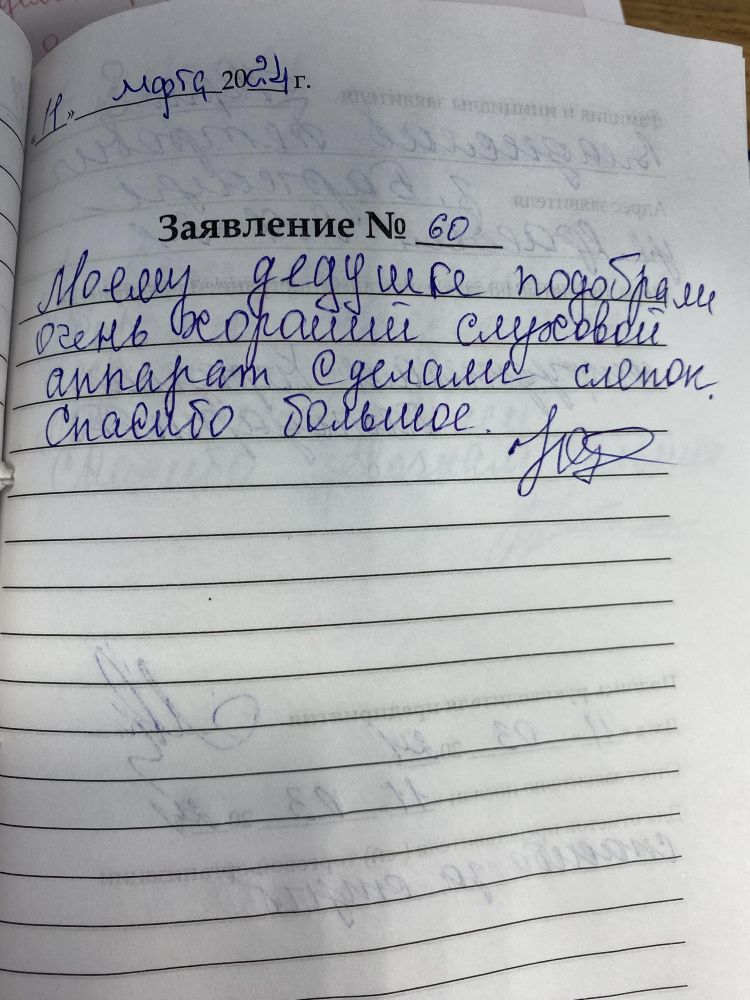 «11» марта 2024 г.
Заявление № 60
Моему дедушке подобрали
очень хороший слуховой
аппарат сделали слепок.
Спасибо большое.